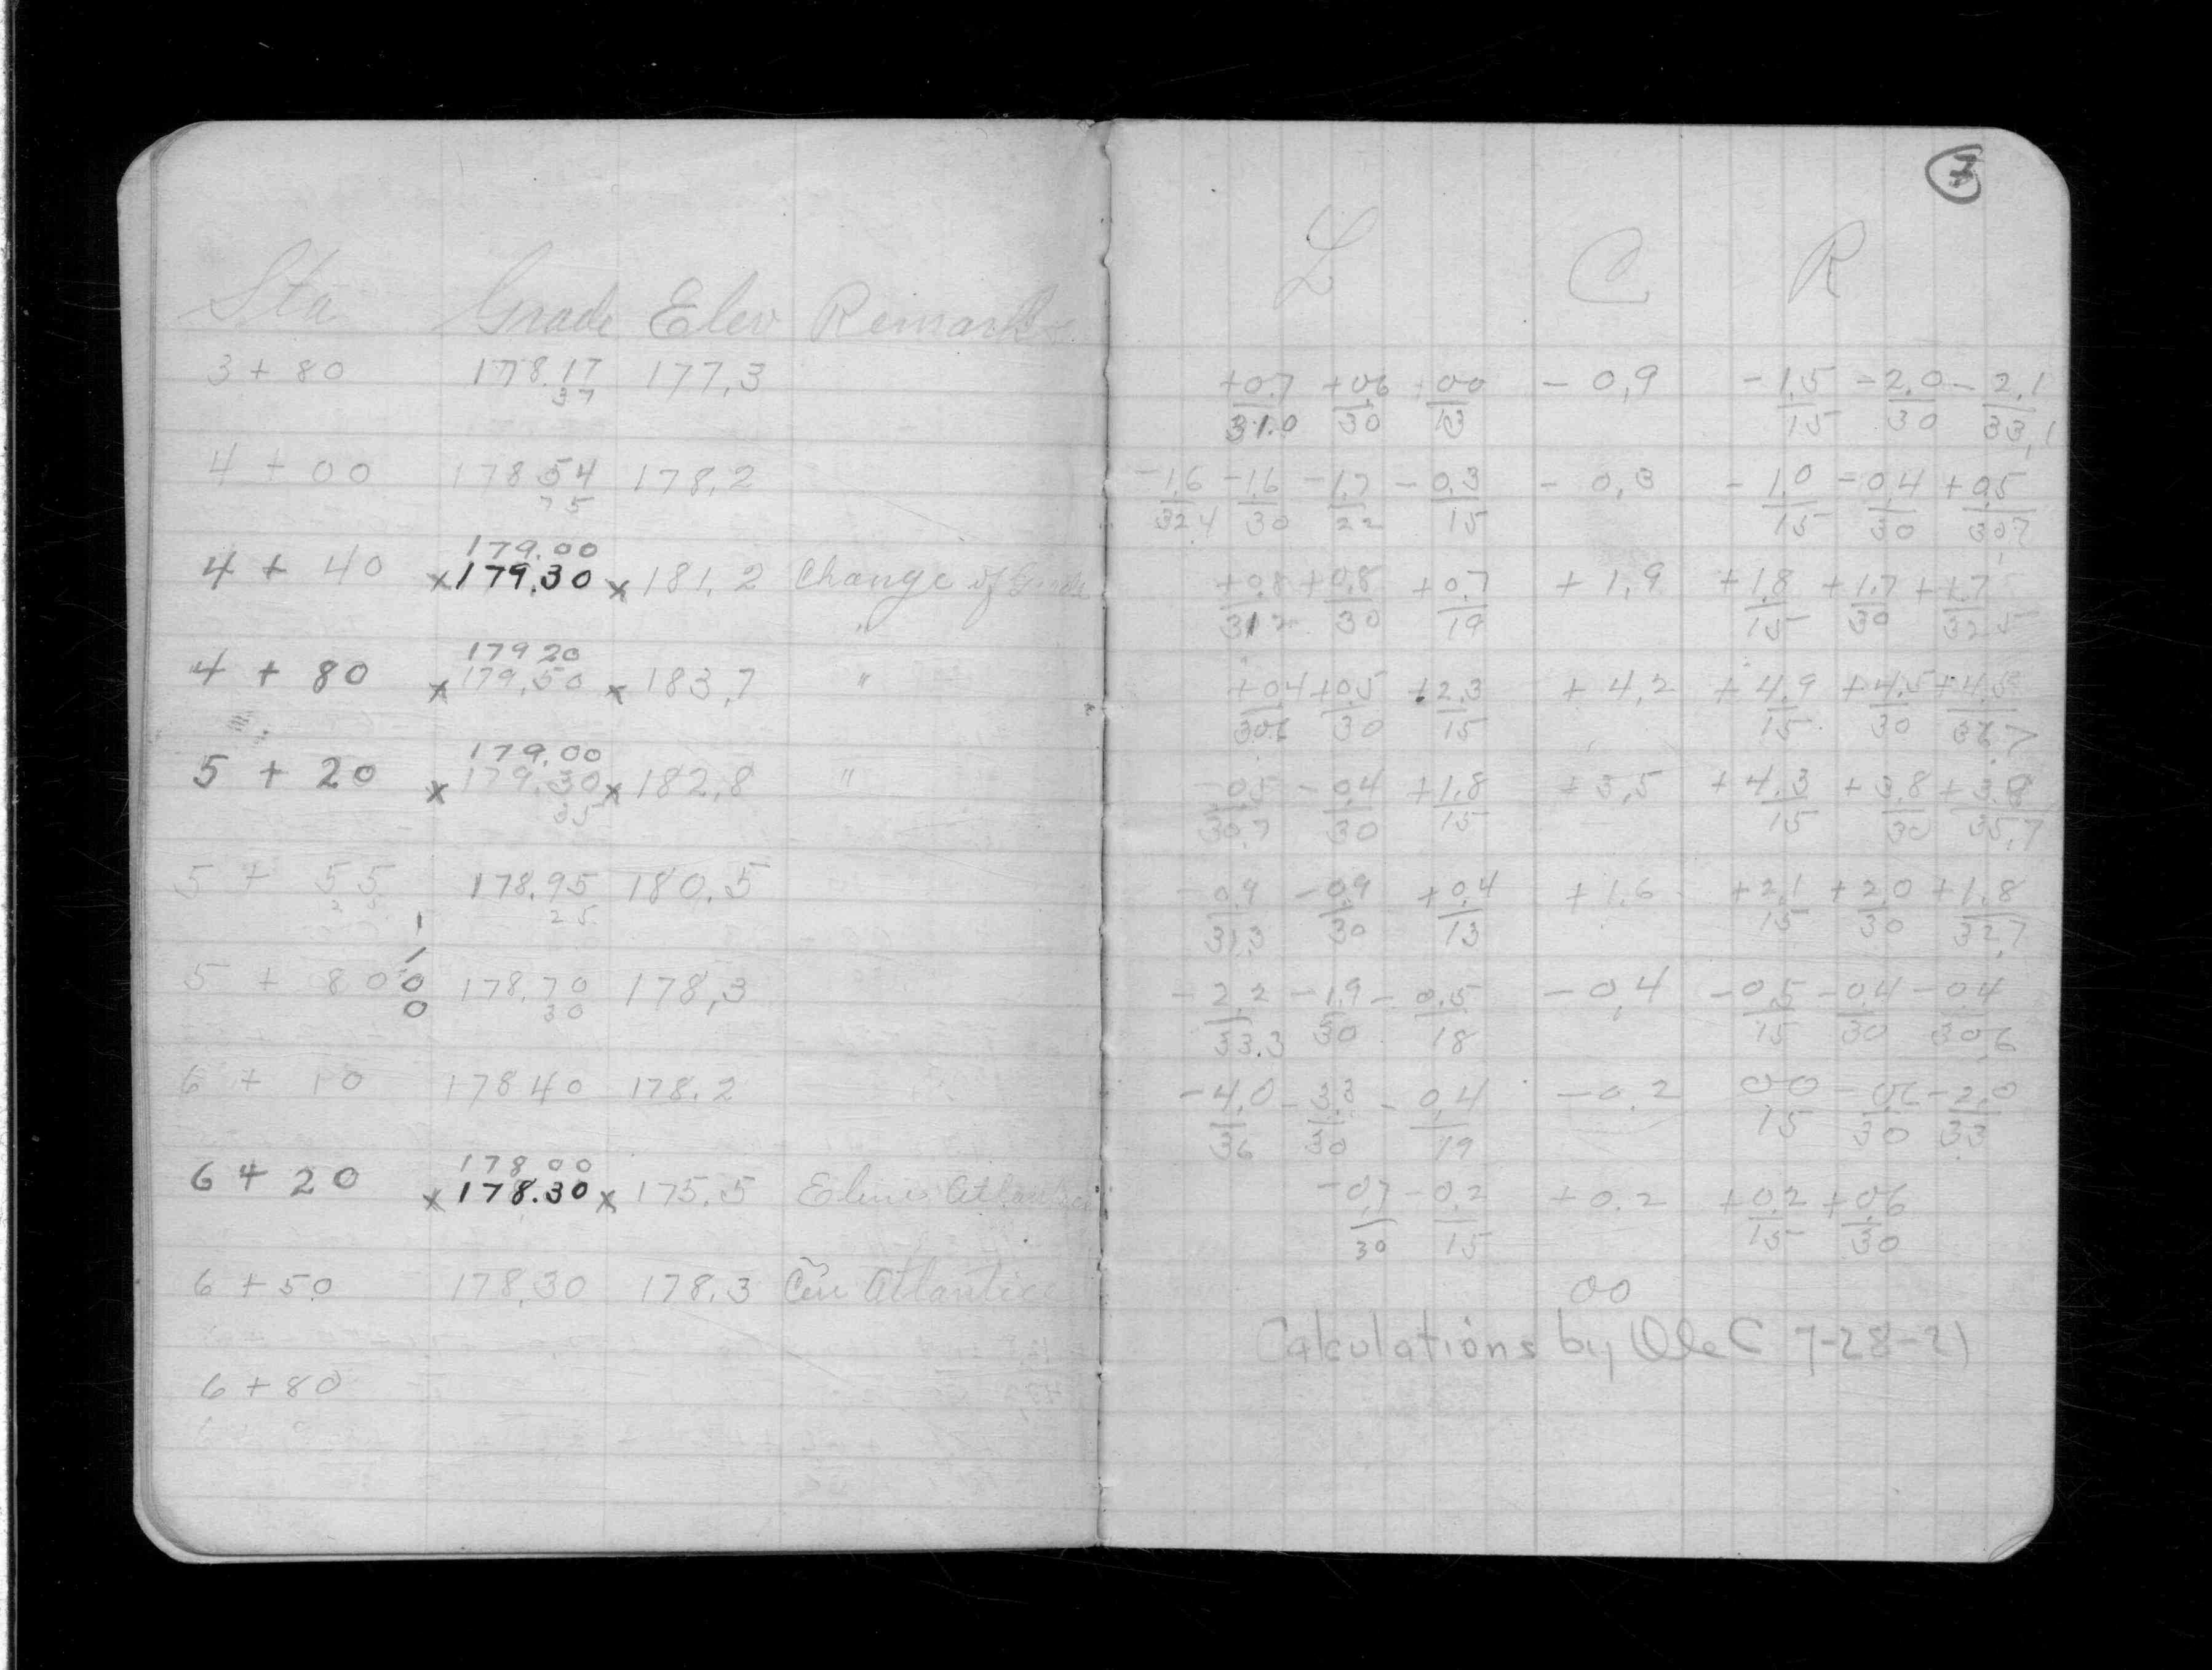 Sta Grade Elev Remarks
3 + 80 178.17 177.3
37
4 + 00 178.54 178.2
75
179.00
4 + 40 x 179.30 x 181.2 Change of Grade
"
179 20
4 + 80 x 179.50 x 183.7 "
179.00
5 + 20 x 179.30 x 182.8 "
35
5 + 55 178.95 180.5
25
5 + 80 178.70 178.3
30
6 + 10 178 40 178.2
178 00
6 + 20 x 178.30 x 175.5 Atlantic
6 + 50 178.30 178.3 Cen Atlantic
6 + 80
7
L C R
+0.7 +0.6 +00 - 0.9 - 1.5 - 2.0 - 2.1
31.0 30 13 15 30 33.1
- 1.6 - 1.6 - 1.7 - 0.3 - 0.3 - 1.0 - 0.4 + 0.5
32.4 30 22 15 15 30 30.7
+ 0.8 + 0.8 + 0.7 + 1.9 + 1.8 + 1.7 + 1.7
31 2 30 19 15 30 32 5
+ 0.4 + 0.5 + 2.3 + 4.2 + 4.9 + 4.5 + 4.5
30.6 30 15 15 30 36.7
- 0.5 - 0.4 + 1.8 + 3.5 + 4.3 + 3.8 + 3.8
30.7 30 15 15 30 35.7
- 0.9 - 0.9 + 0.4 + 1.6 + 2.1 + 2.0 + 1.8
31.3 30 13 15 30 32.7
- 2.2 - 1.9 - 0.5 - 0.4 - 0.5 - 0.4 - 0.4
33.3 30 18 15 30 30.6
- 4.0 - 3.3 - 0.4 - 0.2 00 - 0.6 - 2.0
36 30 19 15 30 33
- 0.7 - 0.2 + 0.2 + 0.2 + 0.6
30 15 15 30
00
Calculations by 7-28-21